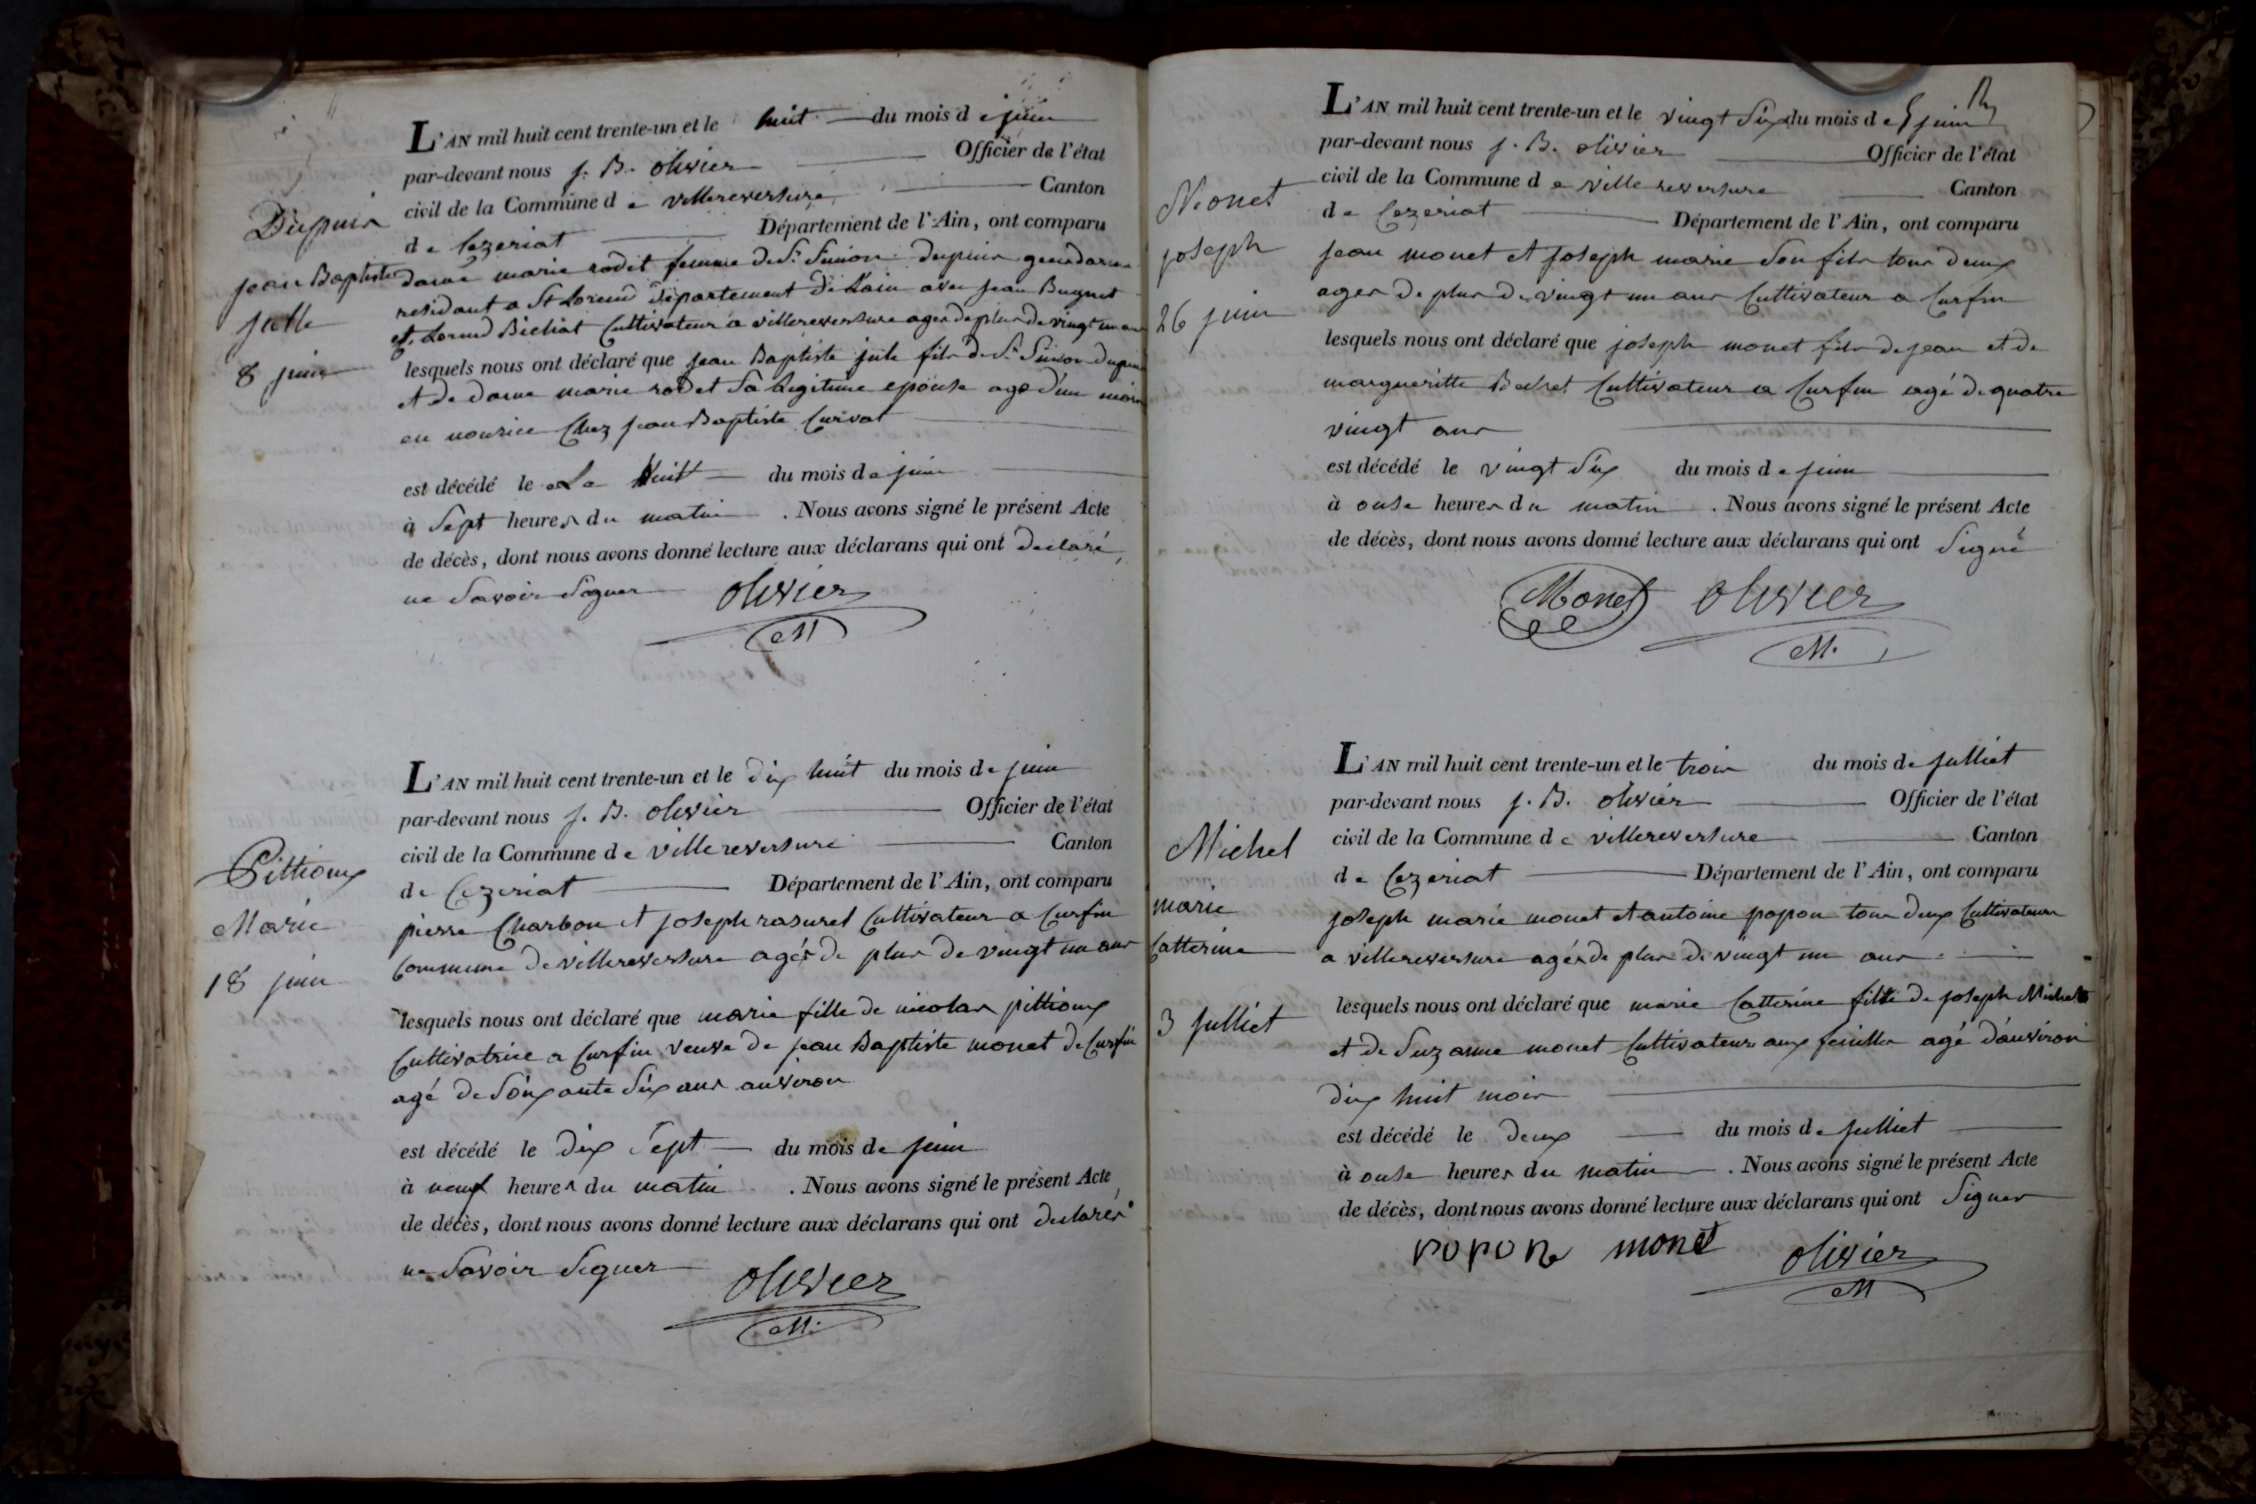 Dupuis
jean Baptiste
julle
8 juin
L'AN mil huit cent trente-un et le huit du mois de juin
par-devant nous j. B. olivier Officier de l'état
civil de la Commune de villereversure Canton
de Cezeriat Département de l'Ain, ont comparu
dame marie rodet femme de Sr. Simion dupuis gendarme
residant a St Lorend Département de Lain avec jean Buguet
et Lorend Bichat Cultivateur a villereversure ages de plus de vingt un ans
lesquels nous ont déclaré que jean Baptiste jule fils de Sr. Simion Dupuis
et de dame marie rodet Sa legitime epouse age d'un mois
en nourice Chez jean Baptiste Curivat
est décédé le Le huit du mois de juin
à Sept heures du matin . Nous avons signé le présent Acte
de décès, dont nous avons donné lecture aux déclarans qui ont declaré
ne Savoir Signer olivier
M
Pittioux
Marie
18 juin
L'AN mil huit cent trente-un et le dix huit du mois de juin
par-devant nous j. B. olivier Officier de l'état
civil de la Commune de villereversure Canton
de Cezeriat Département de l'Ain, ont comparu
pierre Charbon et joseph rasurel Cultivateur a Curfin
Commune de villereversure agés de plus de vingt un ans
lesquels nous ont déclaré que marie fille de nicolas pittioux
Cultivatrice a Curfin veuve de jean Baptiste monet de Curfin
agé de Soixante Six ans anviron
est décédé le dix Sept du mois de juin
à neuf heures du matin . Nous avons signé le présent Acte
de décès, dont nous avons donné lecture aux déclarans qui ont declarés
ne Savoir Signer olivier
M.
Monet
joseph
26 juin
L'AN mil huit cent trente-un et le vingt Six du mois de juin
par-devant nous j. B. olivier Officier de l'état
civil de la Commune de villereversure Canton
de Cezeriat Département de l'Ain, ont comparu
jean monet et joseph marie Son fils tous deux
ages de plus de vingt un ans Cultivateur a Curfin
lesquels nous ont déclaré que joseph monet fils de jean et de
margueritte Cultivateur a Curfin agé de quatre
vingt ans
est décédé le vingt Six du mois de juin
à onse heures du matin . Nous avons signé le présent Acte
de décès, dont nous avons donné lecture aux déclarans qui ont Signé
Monet olivier
M.
Michel
marie
Catterine
3 julliet
L'AN mil huit cent trente-un et le trois du mois de julliet
par-devant nous j. B. olivier Officier de l'état
civil de la Commune de villereversure Canton
de Cezeriat Département de l'Ain, ont comparu
joseph marie monet et antoine popon tous deux Cultivateurs
a villereversure agés de plus de vingt un ans
lesquels nous ont déclaré que marie Catterine fille de joseph Michel
et de Suzanne monet Cultivateurs aux feuilles agé d'anviron
dix huit mois
est décédé le deux du mois de julliet
à onse heures du matin . Nous avons signé le présent Acte
de décès, dont nous avons donné lecture aux déclarans qui ont Signer
popon monet olivier
M